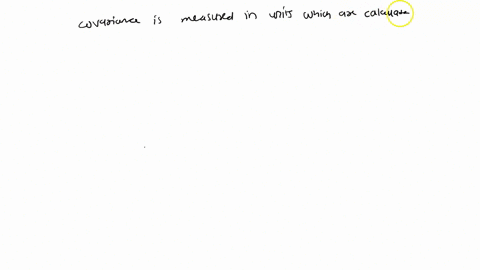 covariance is measured in units which are calculate